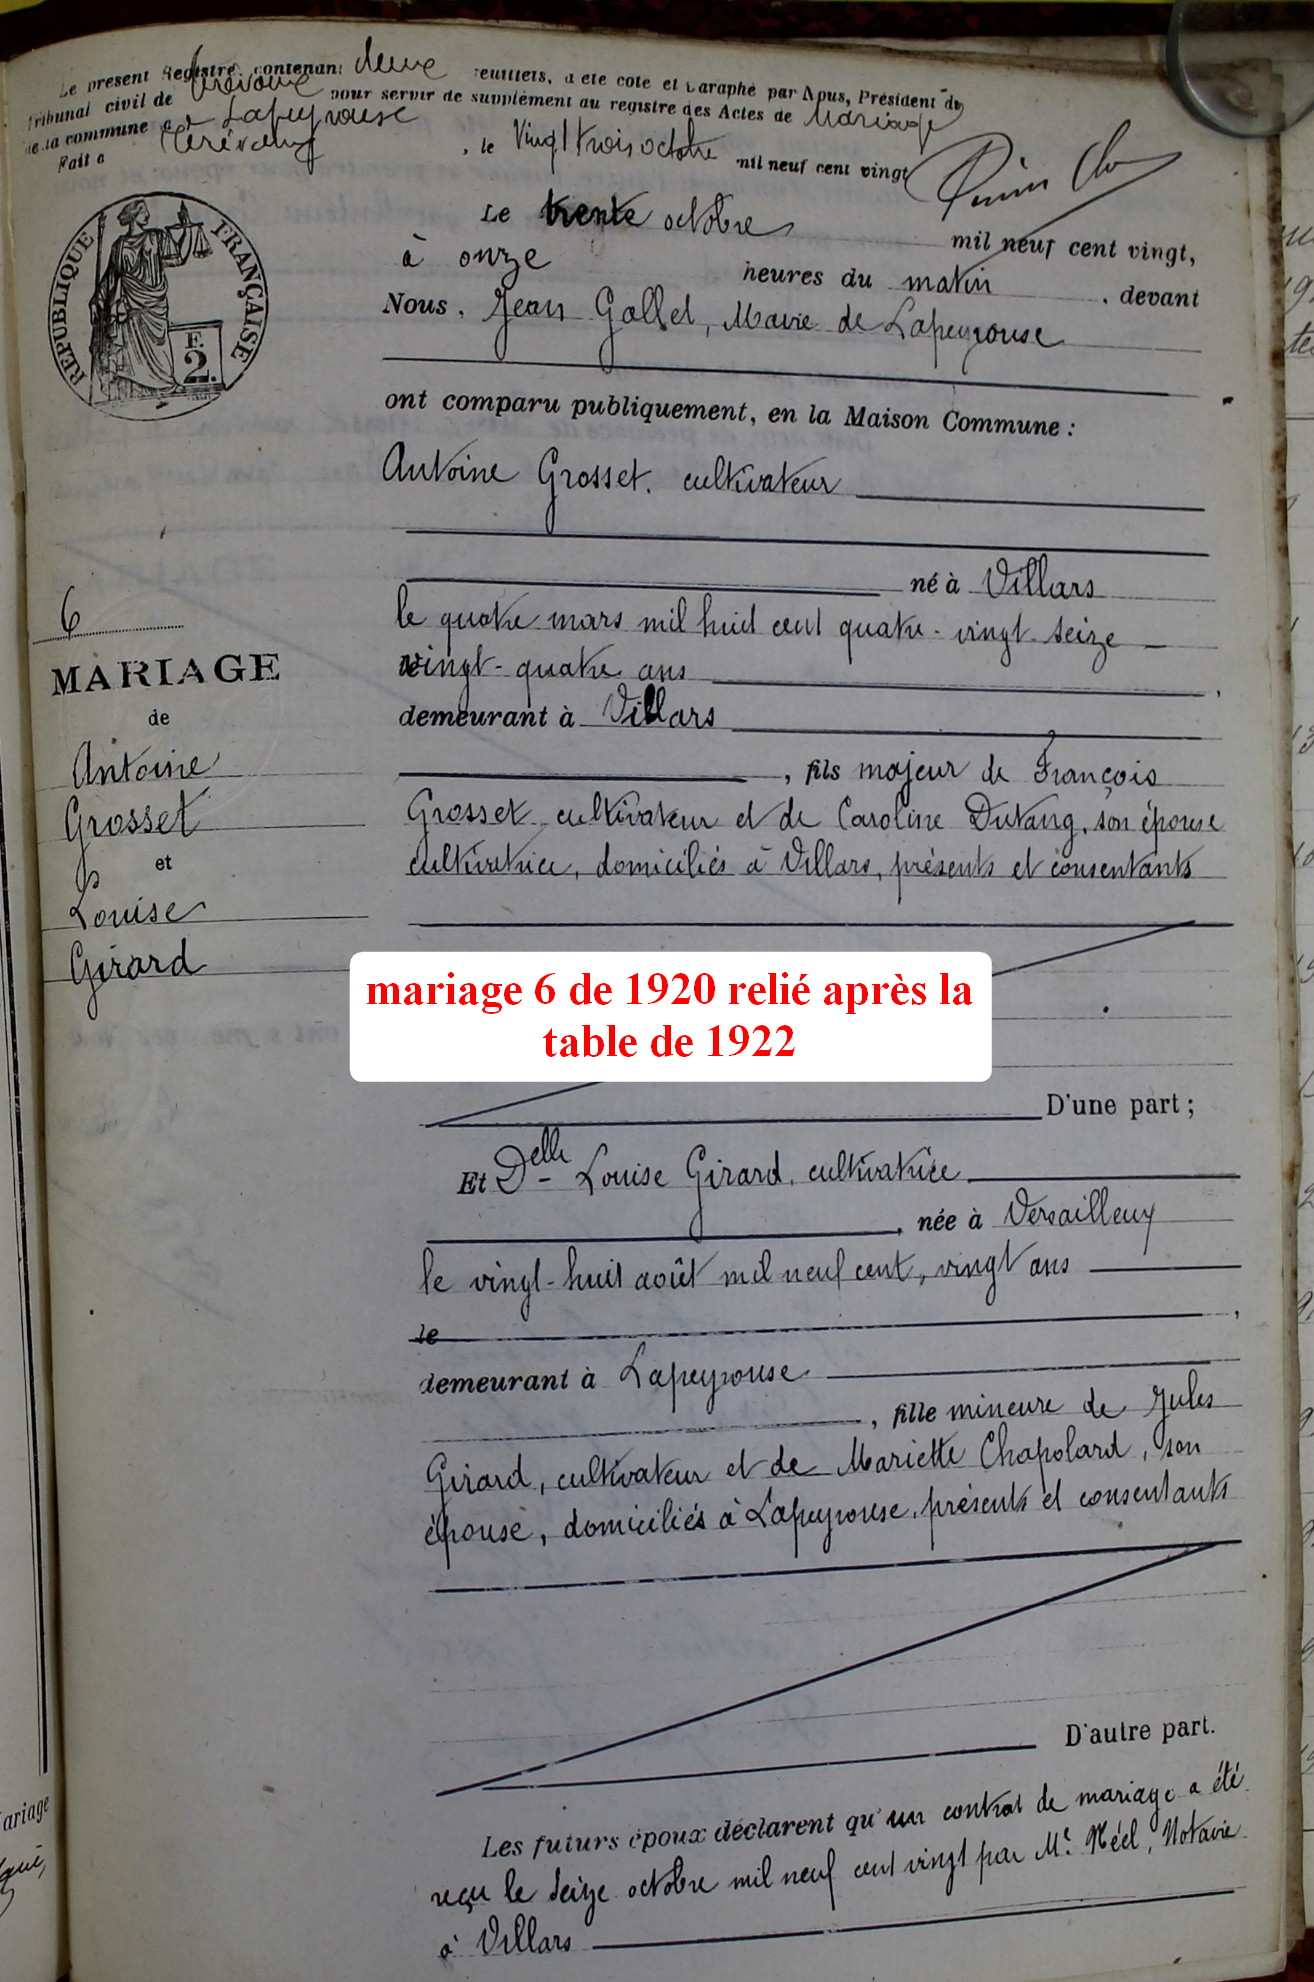 Le présent Registre, contenant deux feuillets, a été coté et paraphé par Nous, Président du
Tribunal civil de Trévoux pour servir de supplément au registre des Actes de Mariage
de la commune de Lapeyrouse
Fait à Trévoux, le Vingt trois octobre mil neuf cent vingt
RÉPUBLIQUE FRANÇAISE
F.
2.
Le trente octobre mil neuf cent vingt,
à onze heures du matin, devant
Nous, Jean Gallet, Maire de Lapeyrouse
ont comparu publiquement, en la Maison Commune :
Antoine Grosset, cultivateur
né à Villars
le quatre mars mil huit cent quatre-vingt-seize
vingt-quatre ans,
demeurant à Villars
, fils majeur de François
Grosset cultivateur et de Caroline Dutang, son épouse
cultivatrice, domiciliés à Villars, présents et consentants
6
MARIAGE
de
Antoine
Grosset
et
Louise
Girard
mariage 6 de 1920 relié après la
table de 1922
D'une part ;
Et Delle Louise Girard, cultivatrice
, née à Versailleux
le vingt-huit août mil neuf cent, vingt ans
le ,
demeurant à Lapeyrouse
, fille mineure de Jules
Girard, cultivateur et de Mariette Chapolard, son
épouse, domiciliés à Lapeyrouse, présents et consentants
D'autre part.
Les futurs époux déclarent qu'un contrat de mariage a été
reçu le seize octobre mil neuf cent vingt par Me Notaire
à Villars